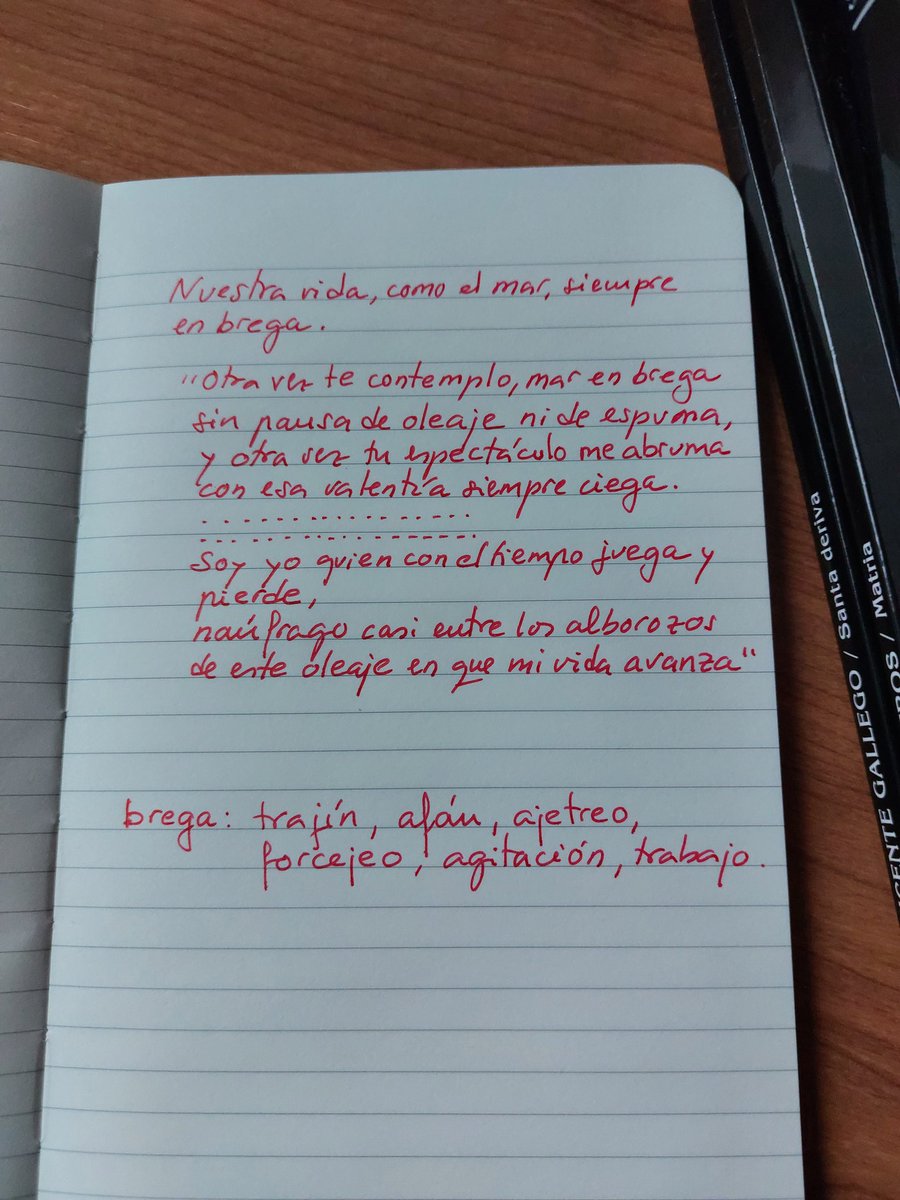 Nuestra vida, como el mar, siempre
en brega.
"Otra vez te contemplo, mar en brega
sin pausa de oleaje ni de espuma,
y otra vez tu espectáculo me abruma
con esa valentía siempre ciega.
. . . . . . . . . . . . . . . . . .
. . . . . . . . . . . . . . . . . .
Soy yo quien con el tiempo juega y
pierde,
naúfrago casi entre los alborozos
de este oleaje en que mi vida avanza"
brega: trajín, afán, ajetreo,
forcejeo, agitación, trabajo.
ICENTE GALLEGO / Santa deriva
ROS / Matria